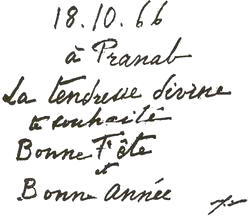 18.10.66
à Pranab
La tendresse divine
te souhaite
Bonne Fête
et
Bonne Année